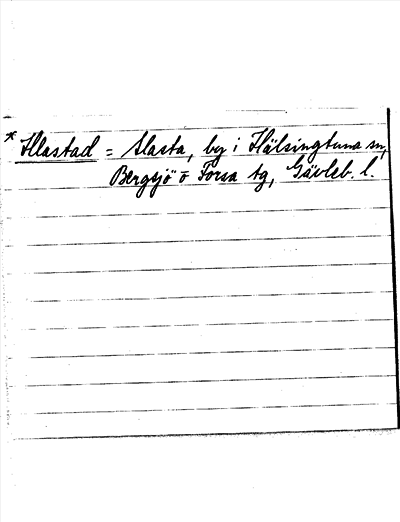 * Illastad = Ilasta, by i Hälsingtuna sn,
Bergsjö o Forsa tg, Gävleb. l.